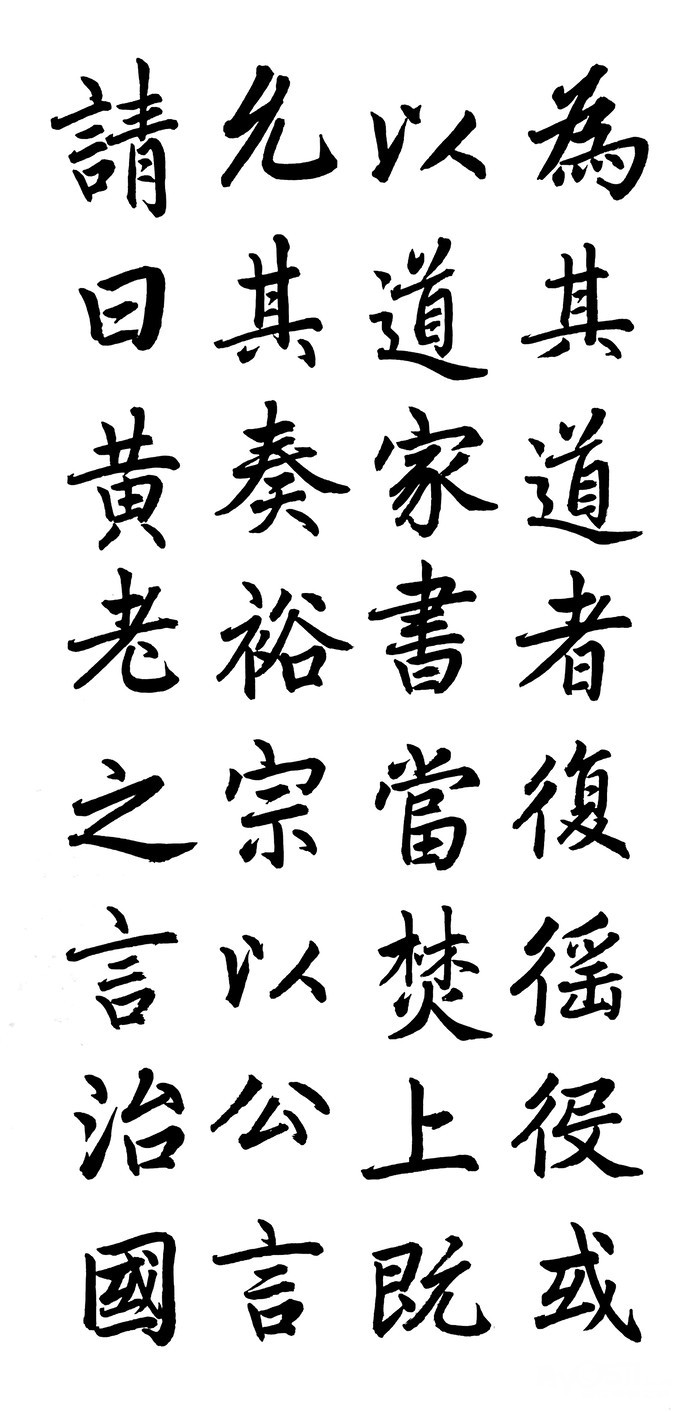 為其道者復徭役或
以道家書當焚上既
允其奏裕宗以公言
請曰黄老之言治國